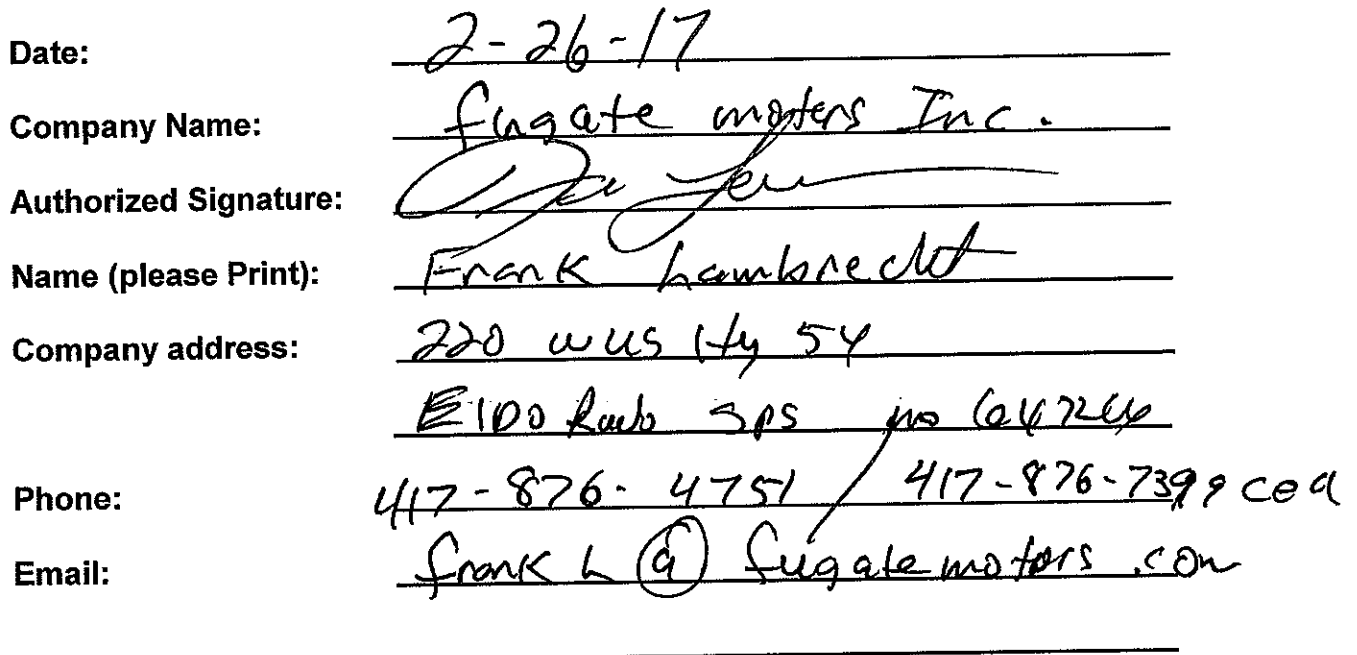 Date: 2-26-17
Company Name: fugate motors Inc.
Authorized Signature:
Name (please Print): Frank Lambrecht
Company address: 220 w us Hy 54
ElDo Rado Sps mo 64744
Phone: 417-876-4751 / 417-876-7399 cell
Email: frank L @ fugatemotors.com